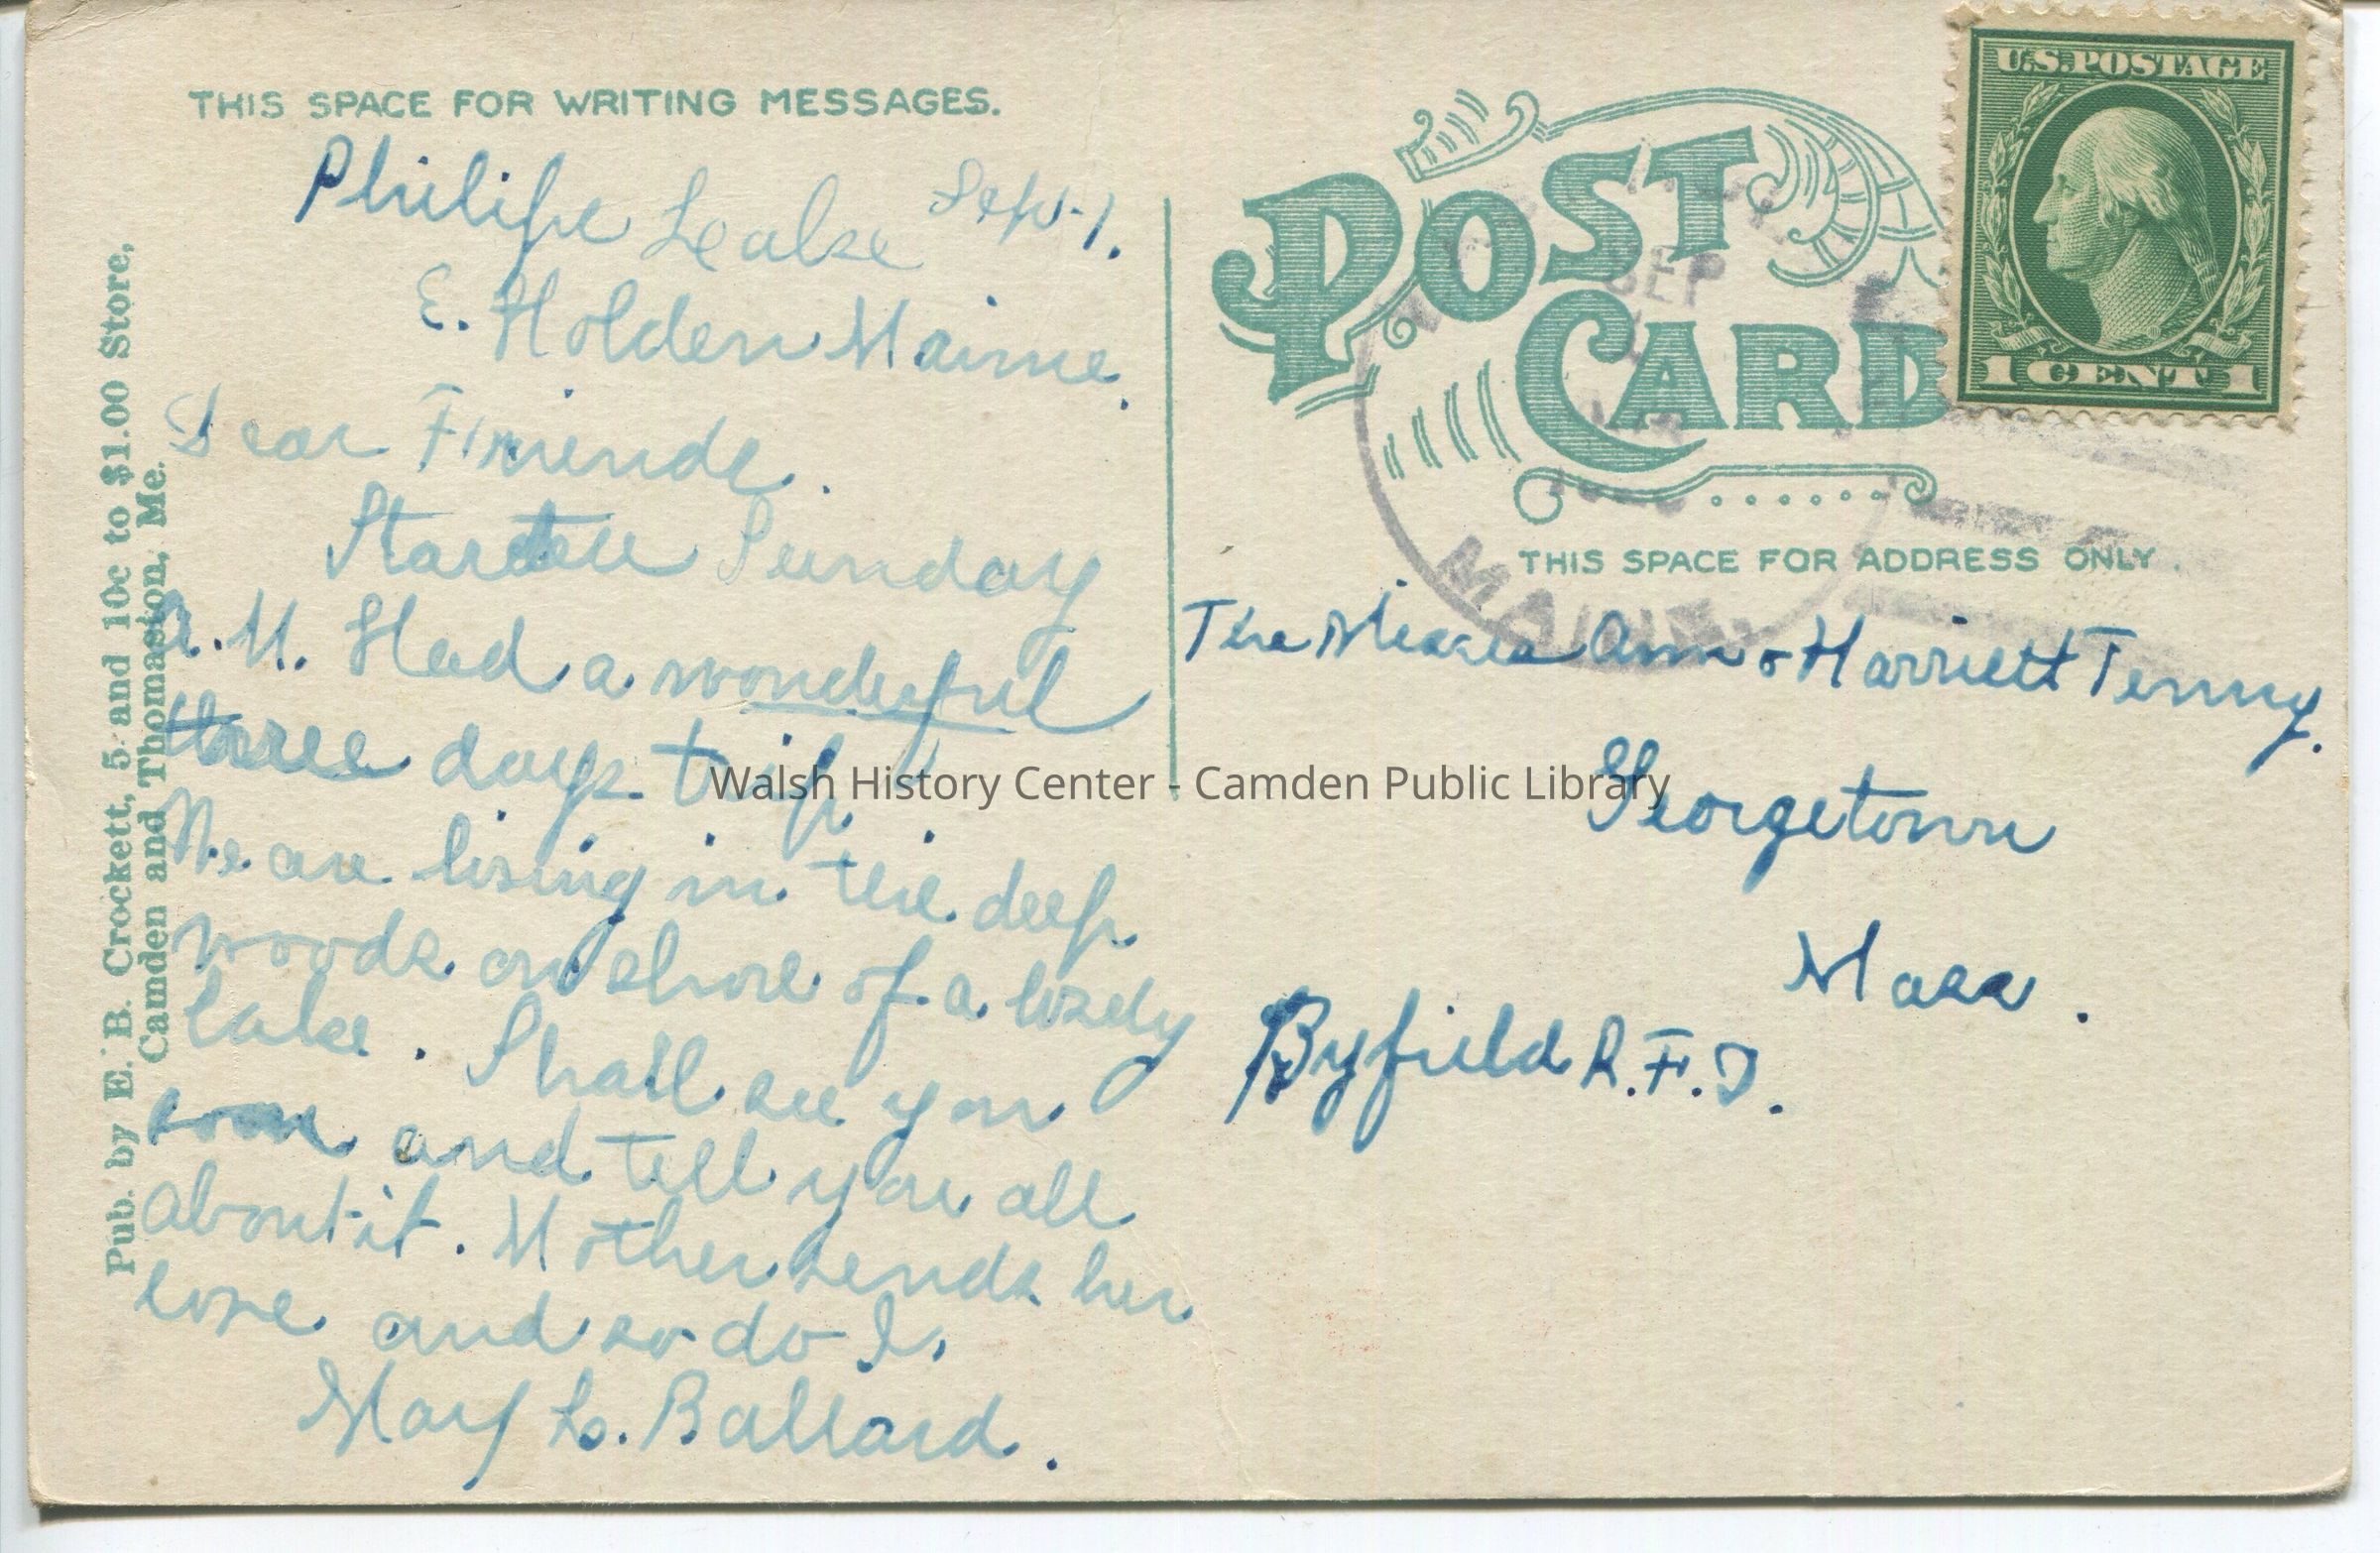 THIS SPACE FOR WRITING MESSAGES.
Philips Lake Sept-1.
E. Holden Maine.
Dear Friends.
Started Sunday
A.M. Had a wonderful
three days trip
We are living in the deep
woods on shore of a lovely
lake. Shall see you
soon and tell you all
about it. Mother sends her
love and so do I.
Mary L. Ballard.
Pub. by E. B. Crockett, 5 and 10c to $1.00 Store,
Camden and Thomaston, Me.
POST
CARD
THIS SPACE FOR ADDRESS ONLY.
U.S. POSTAGE
1 CENT 1
SEP
MAINE
The Misses Ann & Harriett Tenny.
Georgetown
Mass.
Byfield R.F.D.
Walsh History Center - Camden Public Library